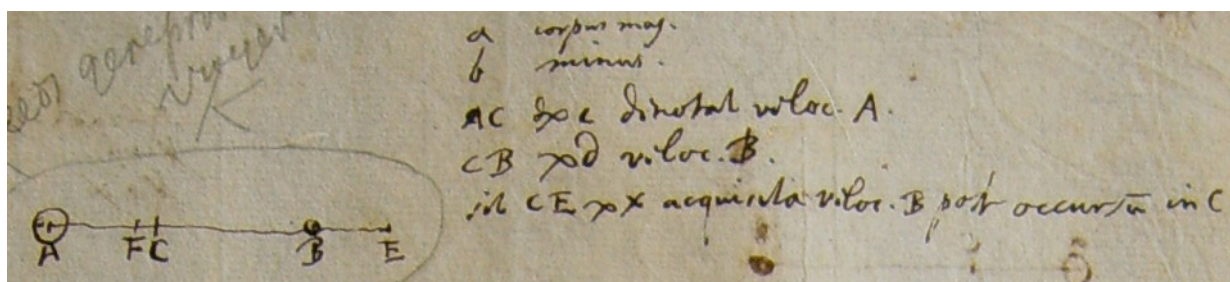 a corpus maj.
b minus.
AC ∝ c denotat veloc. A.
CB ∝ d veloc. B.
sit CE ∝ x acquisita veloc. B post occursū in C
A F C B E